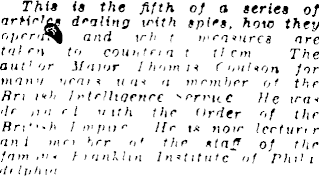 This is the fifth of a series of
articles dealing with spies, how they
and what measures are
taken to counteract them The
author Major Thomas Coulson for
many years was a member of the
British Intelligence Service He was
with the Order of the
British Empire He is now lecturer
and member of the staff of the
famous Franklin Institute of Phila
delphia